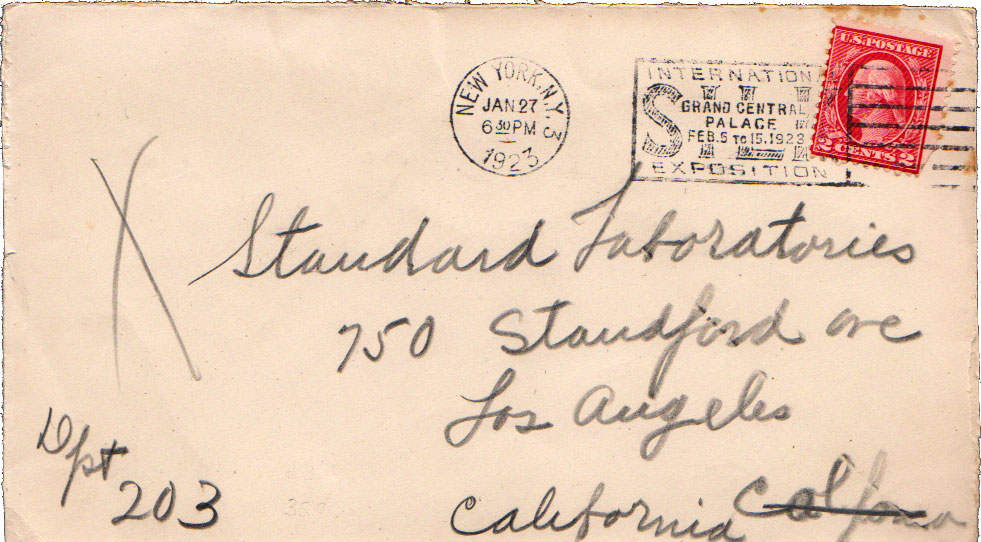 NEW YORK, N.Y. 3
JAN 27
6 30 PM
1923
INTERNATION
SILK
GRAND CENTRAL
PALACE
FEB. 5 TO 15. 1923
EXPOSITION
U.S. POSTAGE
2 CENTS 2
Standard Laboratories
750 Standford ave
Los Angeles
California
Dpt
203